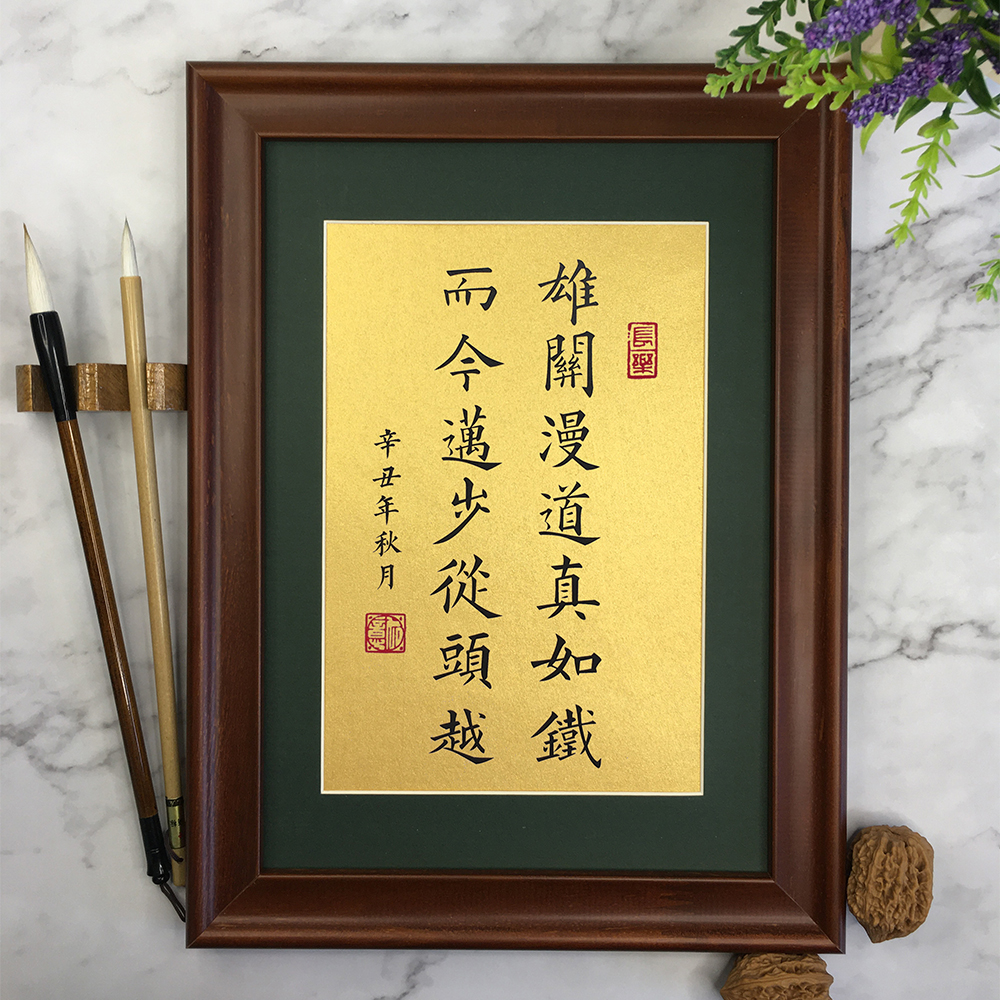 長樂
雄關漫道真如鐵
而今邁步從頭越
辛丑年秋月